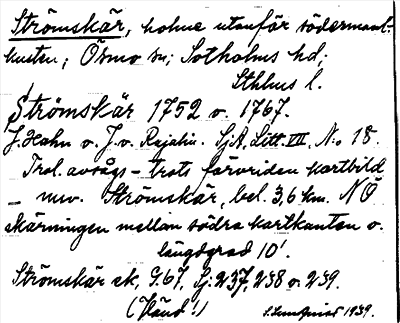 Strömskär, holme utanför södermanl.
kusten; Ösmo sn; Sotholms hd;
Sthlms l.
Strömskär 1752 o. 1767.
J. Hahn o. J. v. Rajalin. SjA, Litt. VII, N:o 18
Trol. avsågs – trots förvriden kartbild
– nuv. Strömskär, bel. 3,6 km. NÖ
skärningen mellan södra kartkanten o.
längdgrad 10'.
Strömskär ek, G. 67, Sj: 237, 238 o. 239.
(Händ!) S. Lundqvist 1939.